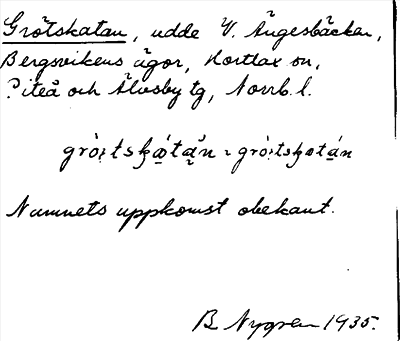 Grötskatan, udde V. Ängesbäcken,
Bergsvikens ägor, Hortlax sn,
Piteå och Älvsby tg, Norrb. l.
Namnets uppkomst obekant.
B. Nygren 1935.